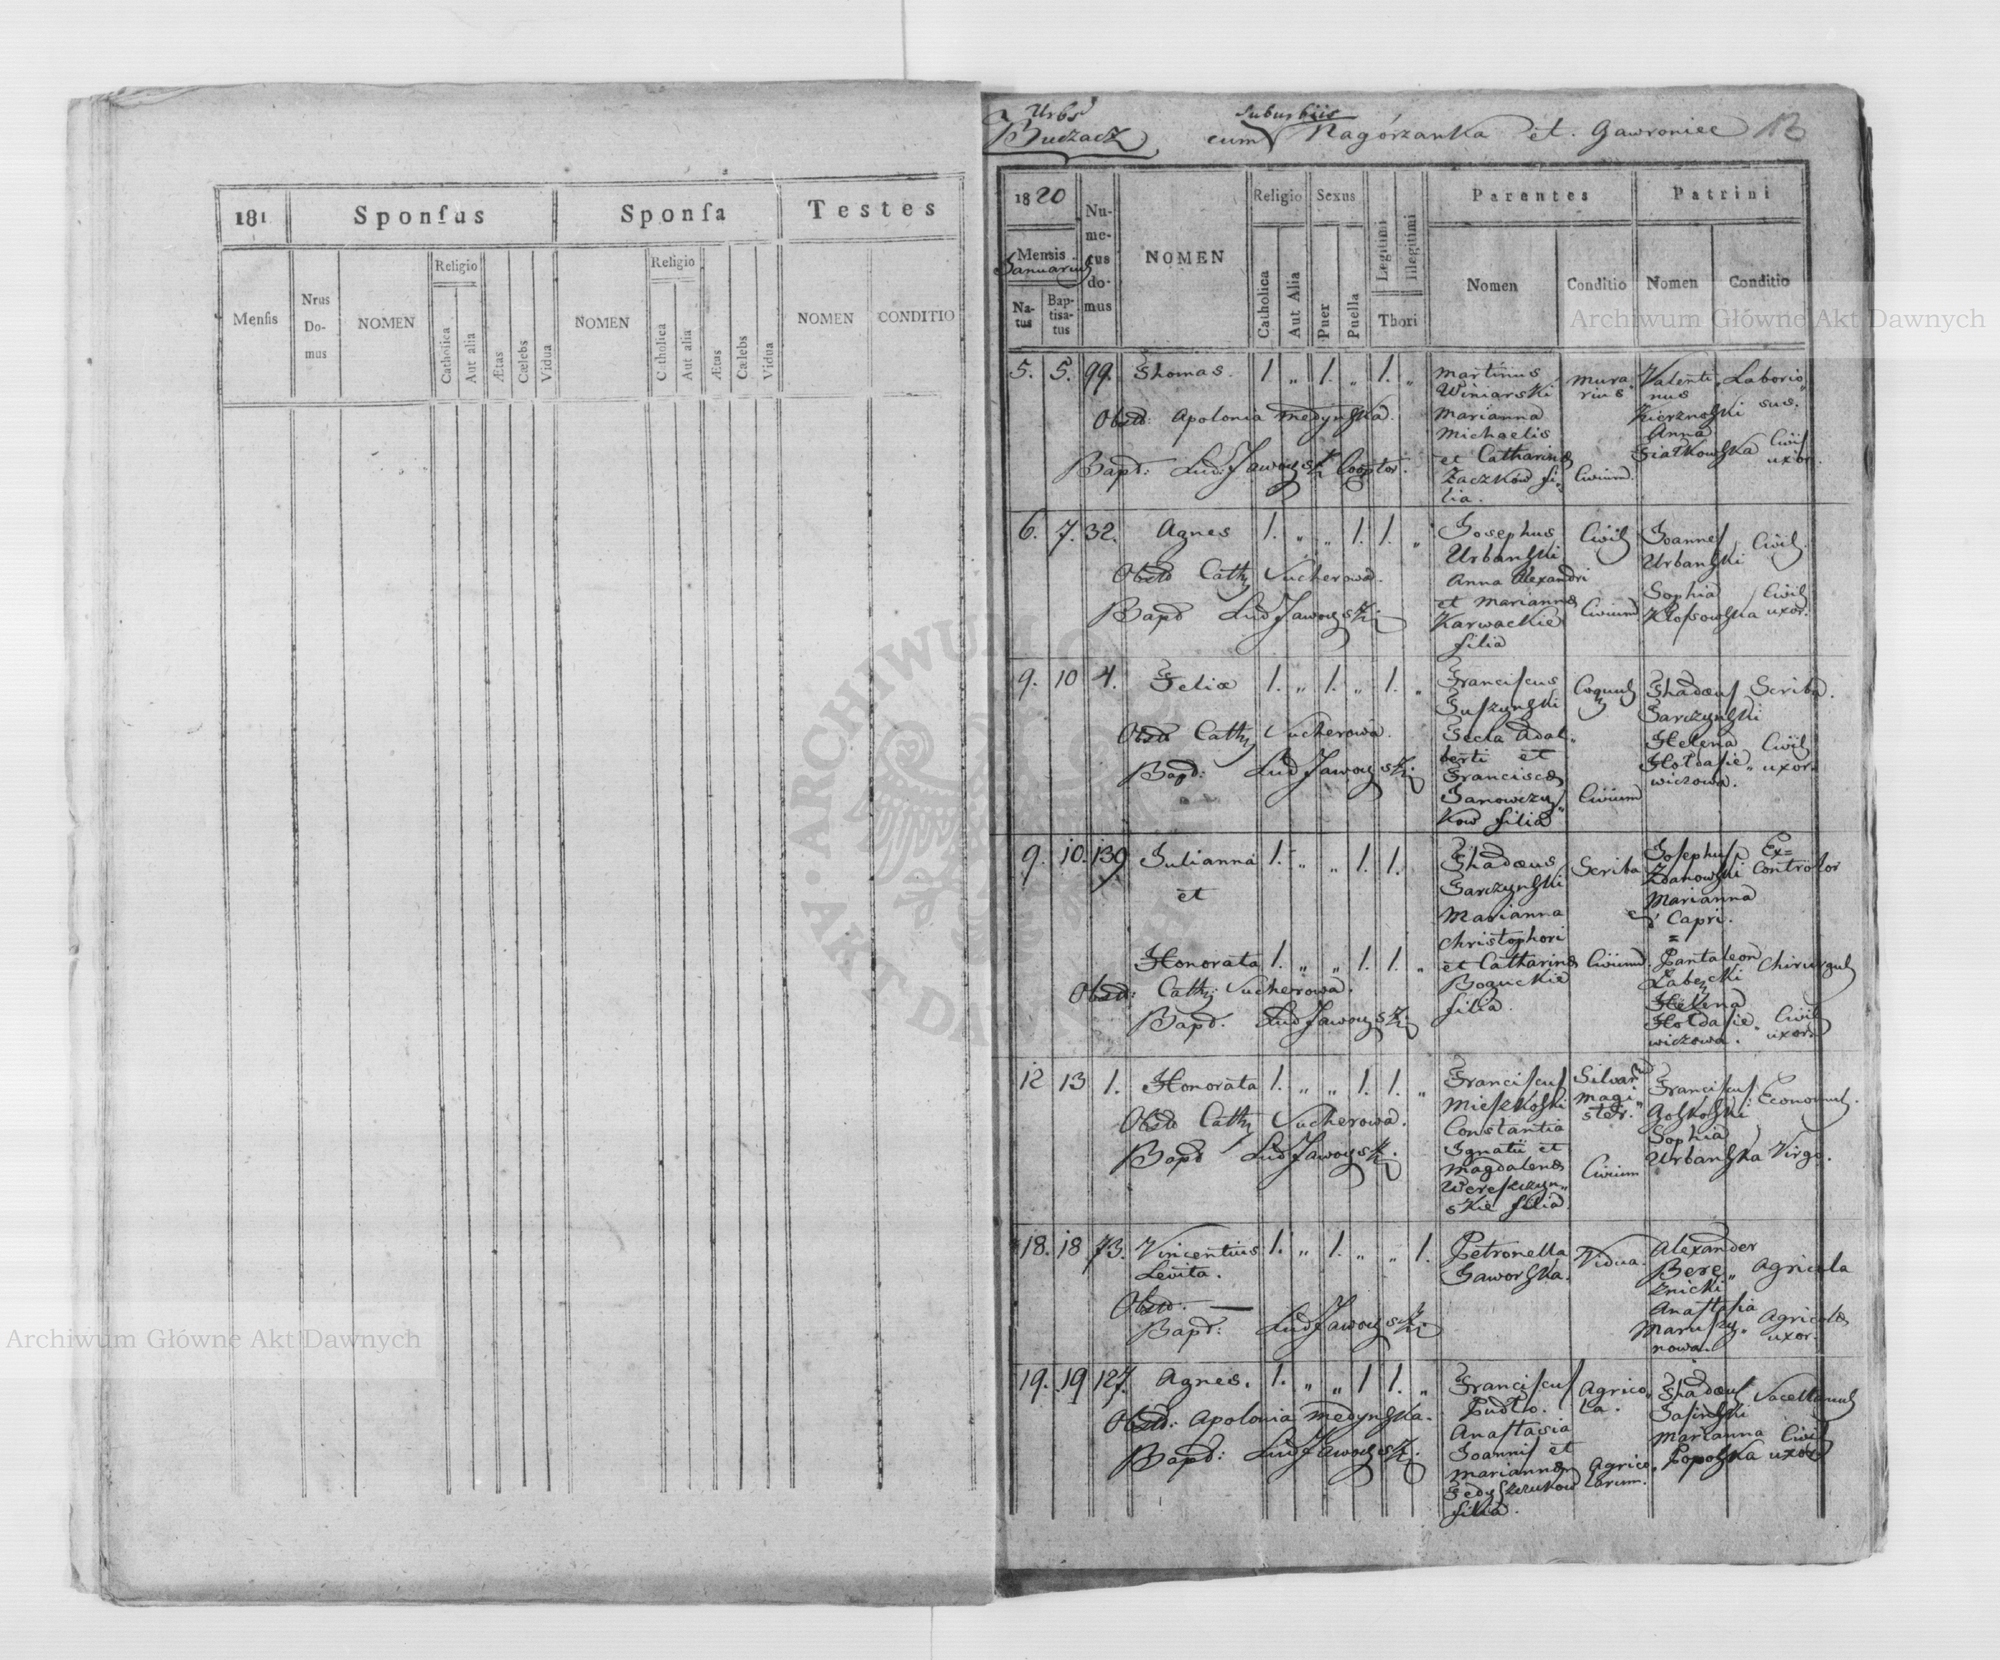 181
Sponſus
Sponſa
Testes
Menſis
Nrus Do- mus
NOMEN
Religio
Catholica
Aut alia
Ætas
Cælebs
Vidua
NOMEN
Religio
Catholica
Aut alia
Ætas
Cælebs
Vidua
NOMEN
CONDITIO
Urbs
Buczacz
suburbiis
cum Nagórzanka et. Gawroniec 13
1820
Mensis
Januarius
Na-
tus
Bap-
tisa-
tus
Nu-
me-
rus
do-
mus
NOMEN
Religio
Catholica
Aut Alia
Sexus
Puer
Puella
Legitimi
Illegitimi
Thori
Parentes
Nomen
Conditio
Patrini
Nomen
Conditio
5. 5. 99. Thomas. 1 „ 1. „ 1. „
Obstd: Apolonia Medynska.
Bapd: Lud: Jaworski Cooptor.
Martinus
Winiarski
Marianna
Michaelis
et Catharinæ
Zaczków fi-
lia.
mura-
rius
Civium.
Valenti-
nus
Kierznoski
Anna
Siatkowska
Laborio-
sus.
Civis
uxor.
6. 7. 32. Agnes 1. „ „ 1. 1. „
Obstd Cath Sucherowa.
Bapd Lud Jaworski
Josephus
Urbanski
Anna Alexandri
et Mariannæ
Karwackie
filia
Civis
Civium
Joannes
Urbanski
Sophia
Kłossowska
Civis.
Civis
uxor.
9. 10 4. Felix 1. „ 1. „ 1. „
Obstd Cath Sucherowa.
Bapd: Lud Jaworski
Franciscus
Suszynski
Tecla Adal-
berti et
Franciscæ
Janowczy-
kow filia
Coquus
Civium
Thadæus
Garczynski
Helena
Hołdasie-
wiczowa.
Scriba.
Civis
uxor.
9. 10. 139 Julianna 1. „ „ 1. 1.
et
Honorata 1. „ „ 1. 1. „
Obstd: Cath: Sucherowa.
Bapd. Lud Jaworski
Thadæus
Garczynski
Marianna
Christophori
et Catharinæ
Boguckie
filia.
Scriba
Civium.
Josephus
Zdanowski
Marianna
d' Capri.
=
Pantaleon
Zabecki
Helena
Hołdasie-
wiczowa.
Ex=
Controlor
Chirurgus
Civis
uxor.
12 13 1. Honorata 1. „ „ 1. 1. „
Obstd Cath Sucherowa.
Bapd Lud Jaworski.
Franciscus
Mieszkoski
Constantia
Ignatii et
Magdalenæ
Wereszczyn-
skie filia.
Silvar
magi-
ster.
Civium
Franciscus
Goskoski
Sophia
Urbanska
Economus.
Virgo.
18. 18 73. Vincentius 1. „ 1. „ „ 1.
Levita.
Obstd. —
Bapd: Lud Jaworski
Petronella
Jaworska.
Vidua.
Alexander
Bere-
znicki
Anastasia
Maruszy-
nowa.
Agricola
Agricolæ
uxor.
19. 19 127. Agnes. 1. „ „ 1 1. „
Obstd: Apolonia Medynska.
Bapd: Lud Jaworski.
Franciscus
Pudło.
Anastasia
Joannis et
Mariannæ
Fedyszczukow
filia.
Agrico-
la.
Agrico-
larum.
Thadæus
Jasinski
Marianna
Popolska
Sacellanus
Civis
uxor
Archiwum Główne Akt Dawnych
Archiwum Główne Akt Dawnych
ARCHIWUM
AKT DAWNYCH